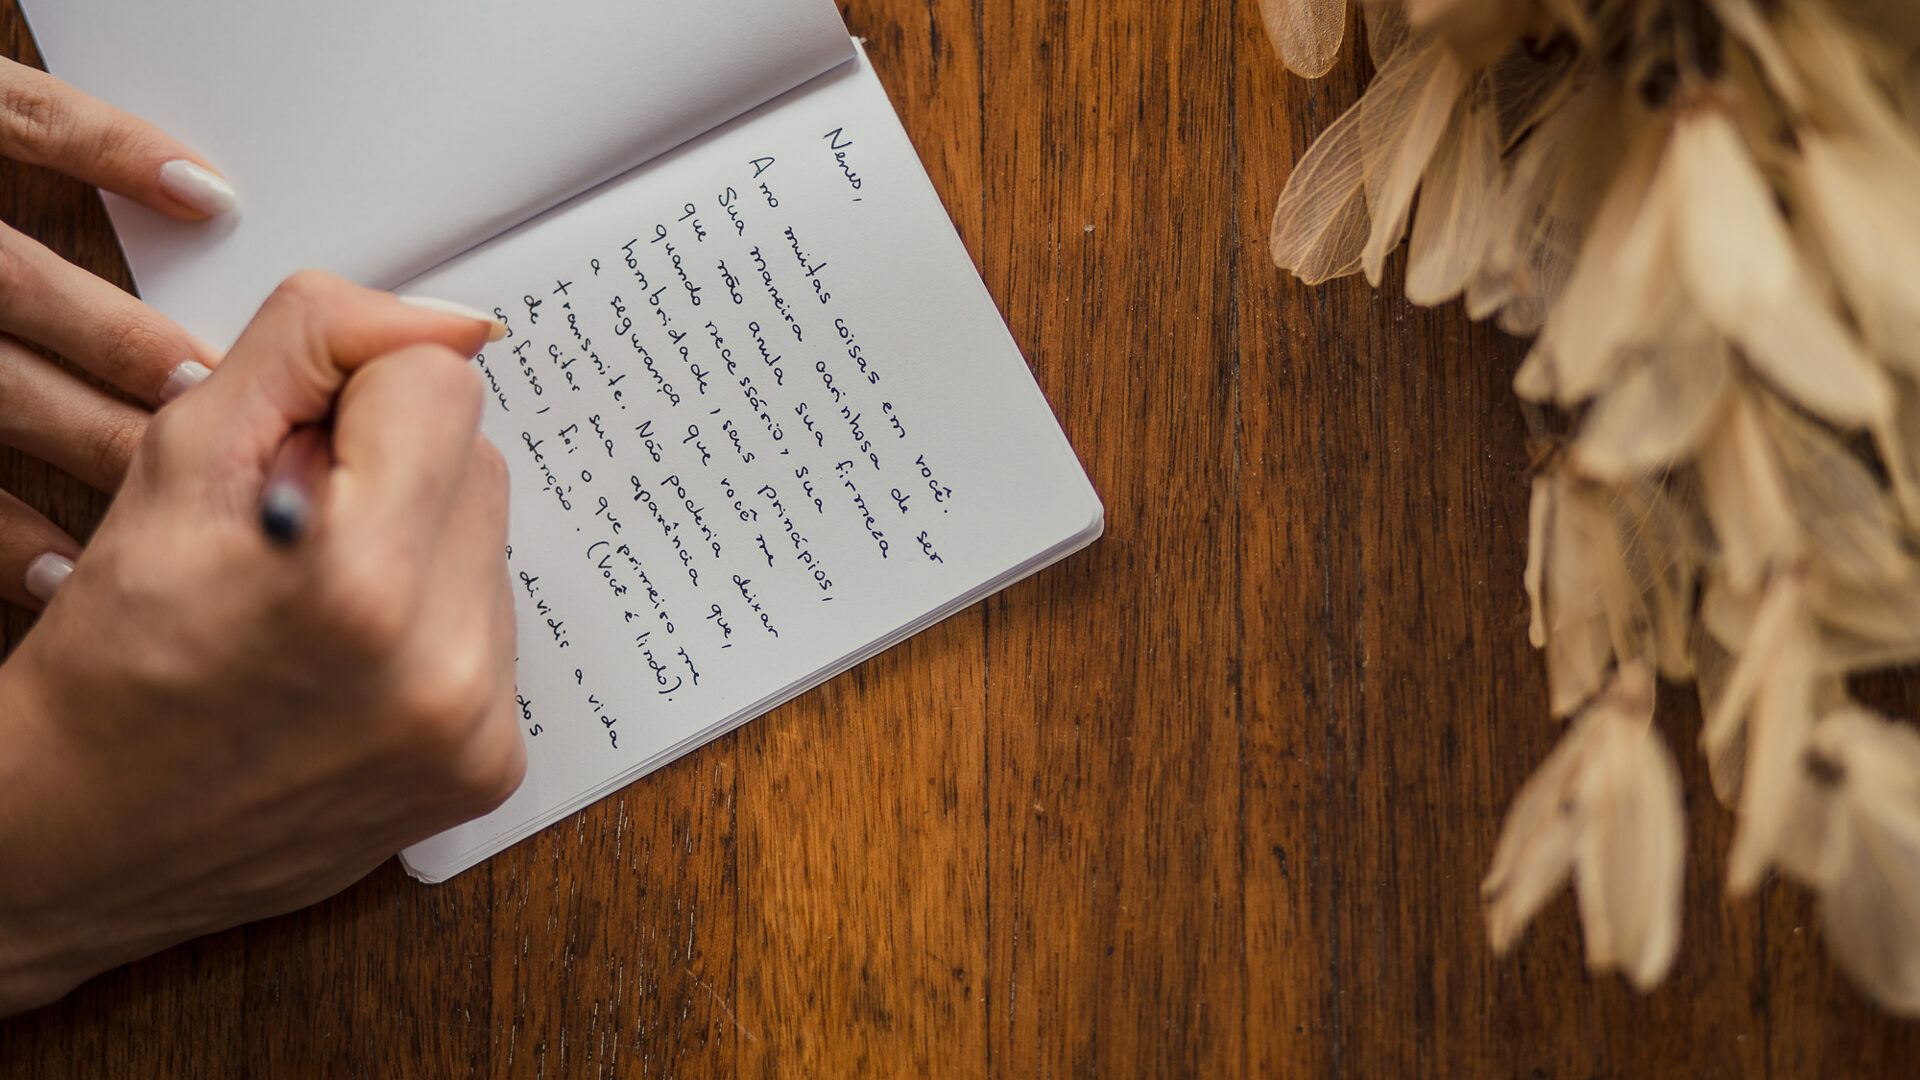 Nenes,
Amo muitas coisas em você.
Sua maneira carinhosa de ser
que não anula sua firmeza
quando necessário, sua
hombridade, seus princípios,
a segurança que você me
transmite. Não poderia deixar
de citar sua aparência que,
confesso, foi o que primeiro me
amou atenção. (Você é lindo).
a dividir a vida
dos